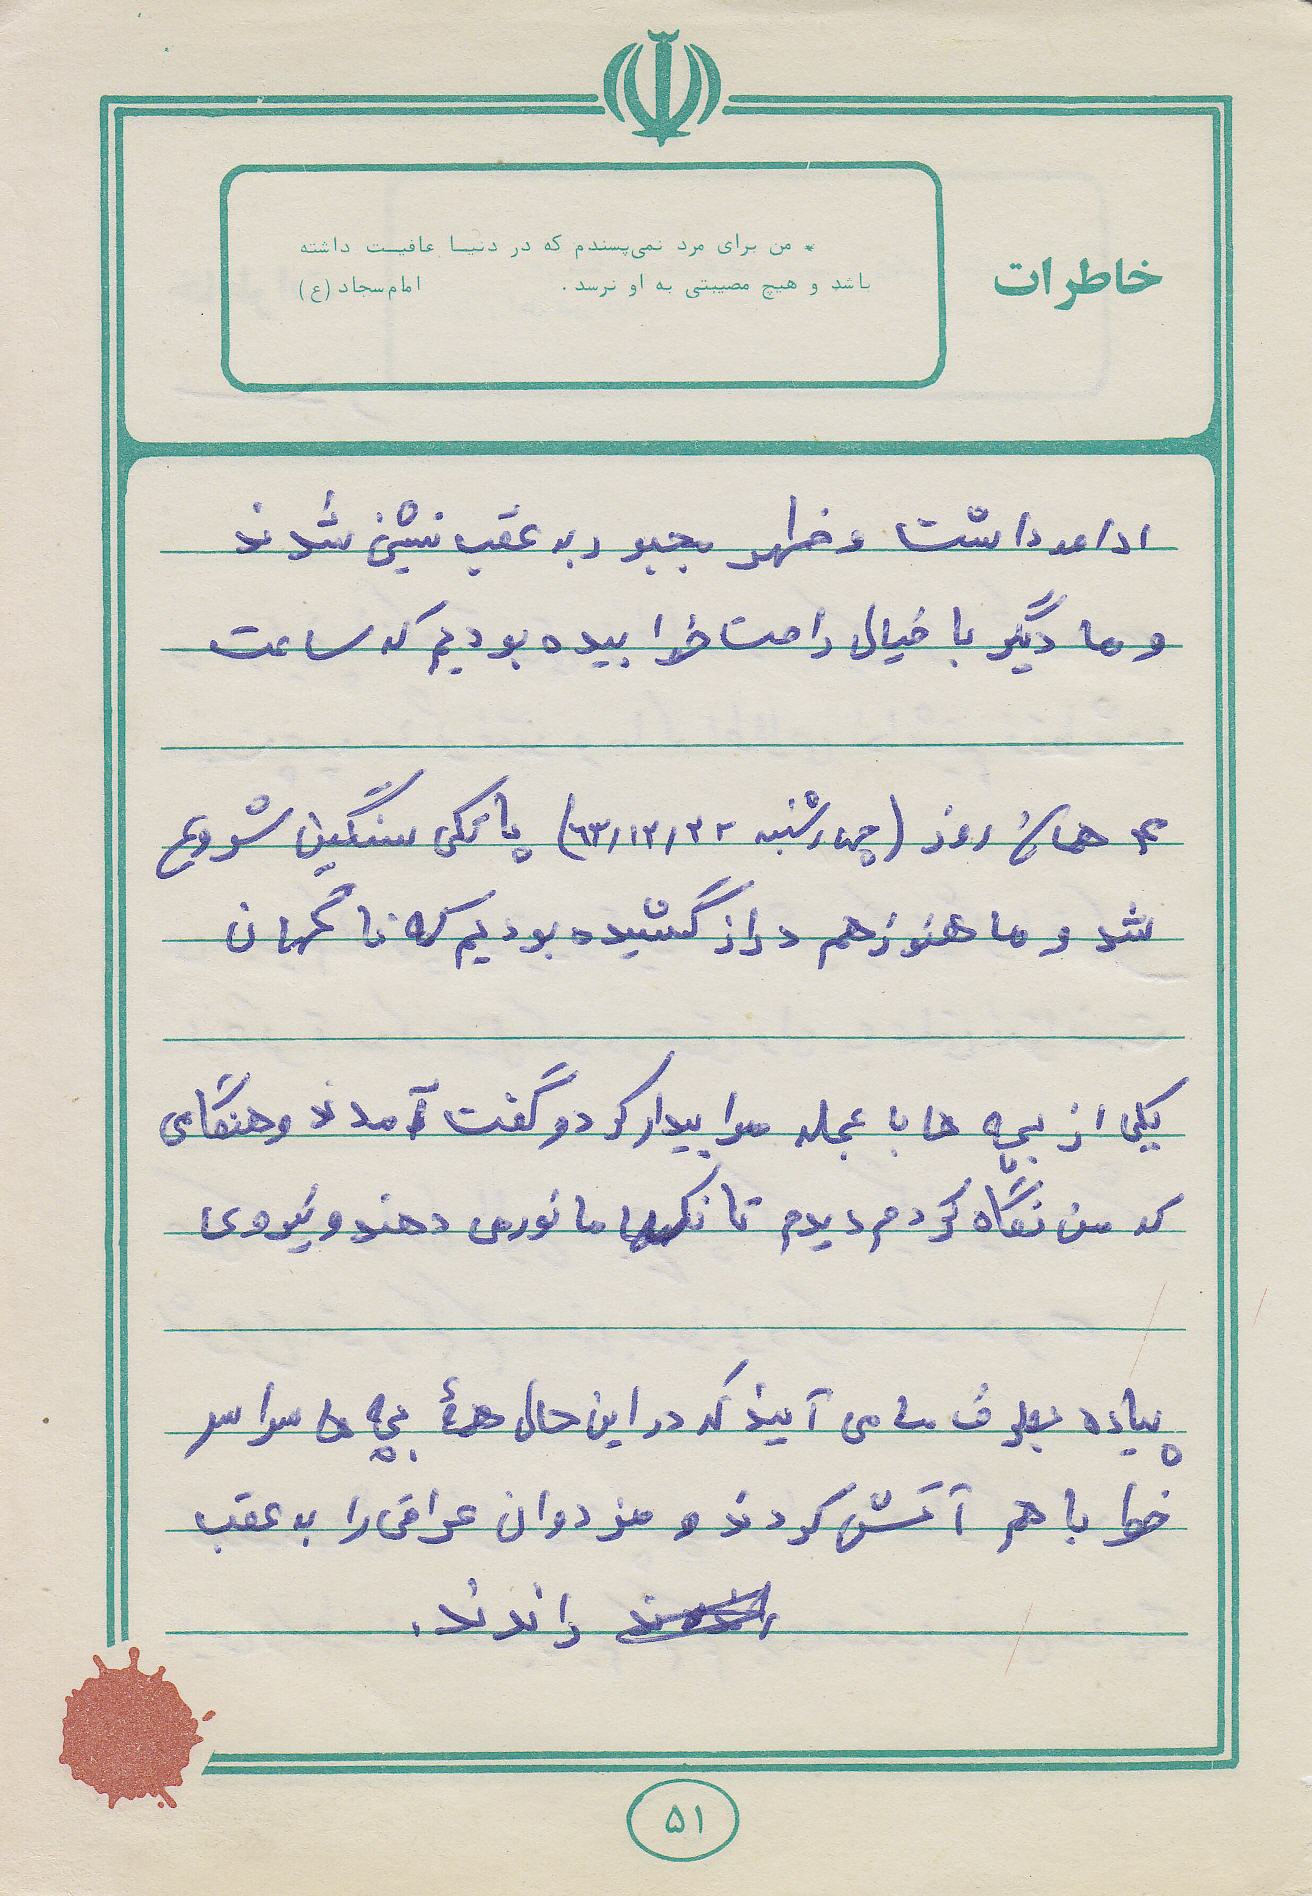 خاطرات
* من برای مرد نمی‌پسندم که در دنیا عافیت داشته
باشد و هیچ مصیبتی به او نرسد. امام سجاد (ع)
ادامه داشت و ظهر مجبور به عقب نشینی شدند
و ما دیگر با خیال راحت خوابیده بودیم که ساعت
۴ همان روز (چهارشنبه ۶۳/۱۲/۲۲) پاتکی سنگین شروع
شد و ما هنوز هم دراز کشیده بودیم که ناگهان
یکی از بچه ها با عجله مرا بیدار کرد و گفت آمدند و هنگامی
که من نگاه کردم دیدم تانکها مانور می دهند و نیروی
پیاده بطرف ما می آیند که در این حال همهٔ بچه ها سراسر
خط با هم آتش کردند و مزدوران عراقی را به عقب
راندند.
۵۱